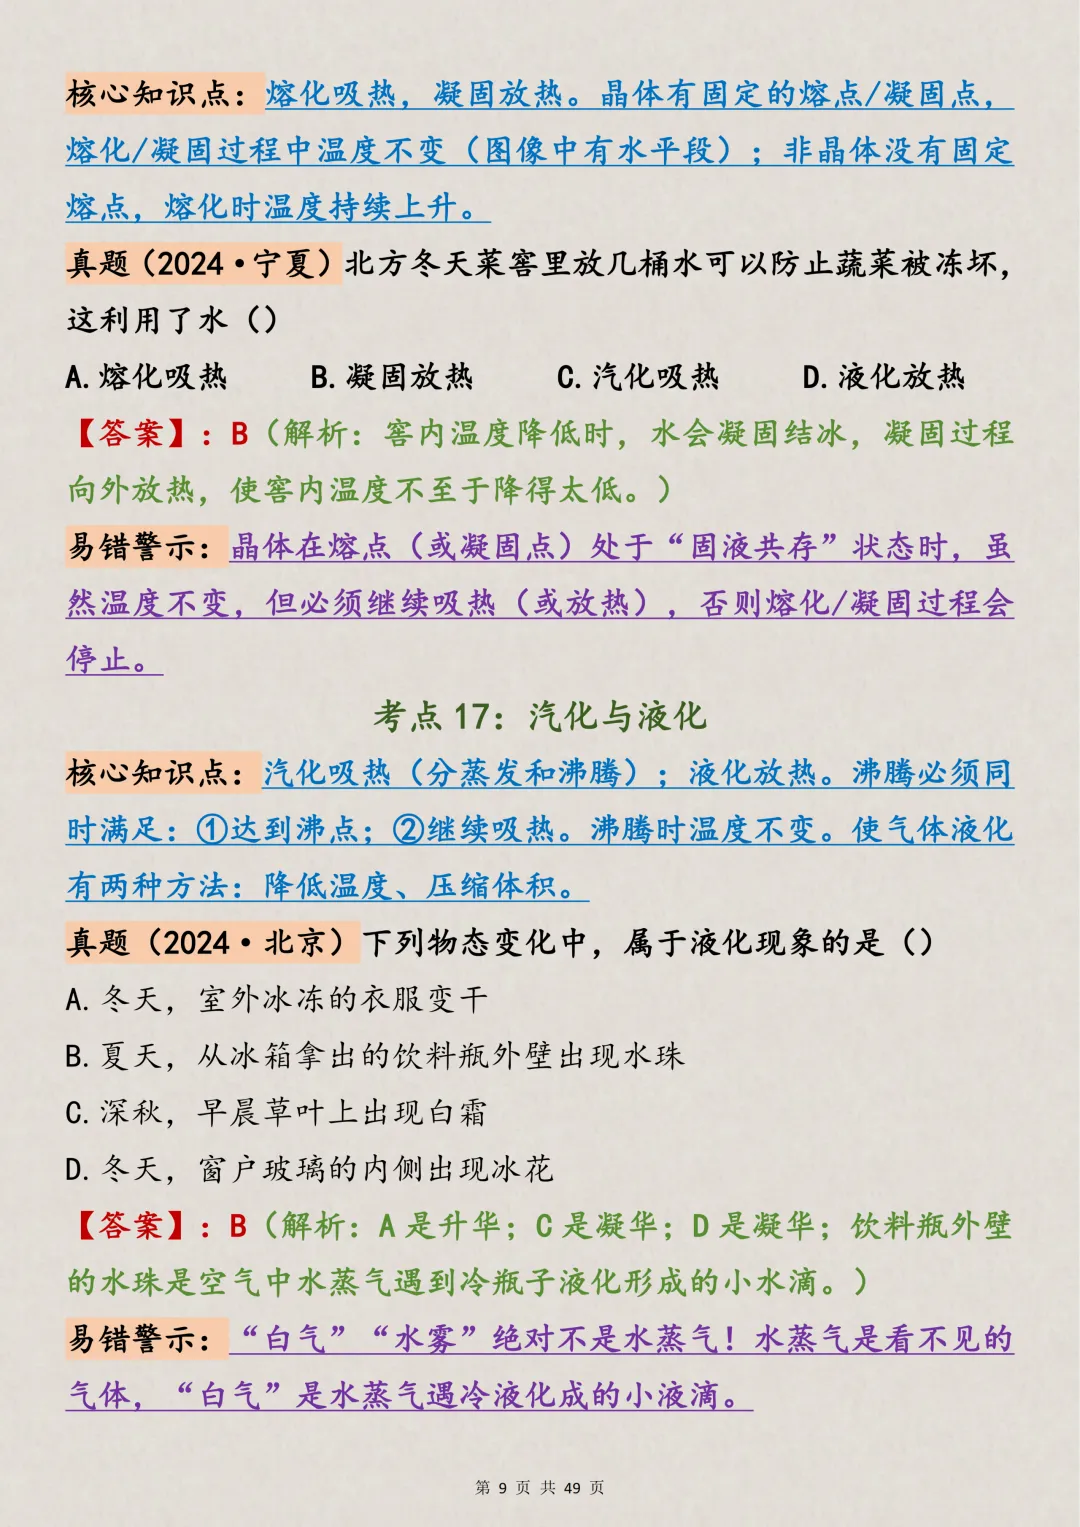 核心知识点：熔化吸热，凝固放热。晶体有固定的熔点/凝固点，
熔化/凝固过程中温度不变（图像中有水平段）；非晶体没有固定
熔点，熔化时温度持续上升。
真题（2024·宁夏）北方冬天菜窖里放几桶水可以防止蔬菜被冻坏，
这利用了水（）
A.熔化吸热 B.凝固放热 C.汽化吸热 D.液化放热
【答案】：B（解析：窖内温度降低时，水会凝固结冰，凝固过程
向外放热，使窖内温度不至于降得太低。）
易错警示：晶体在熔点（或凝固点）处于“固液共存”状态时，虽
然温度不变，但必须继续吸热（或放热），否则熔化/凝固过程会
停止。
考点 17：汽化与液化
核心知识点：汽化吸热（分蒸发和沸腾）；液化放热。沸腾必须同
时满足：①达到沸点；②继续吸热。沸腾时温度不变。使气体液化
有两种方法：降低温度、压缩体积。
真题（2024·北京）下列物态变化中，属于液化现象的是（）
A.冬天，室外冰冻的衣服变干
B.夏天，从冰箱拿出的饮料瓶外壁出现水珠
C.深秋，早晨草叶上出现白霜
D.冬天，窗户玻璃的内侧出现冰花
【答案】：B（解析：A 是升华；C 是凝华；D 是凝华；饮料瓶外壁
的水珠是空气中水蒸气遇到冷瓶子液化形成的小水滴。）
易错警示：“白气”“水雾”绝对不是水蒸气！水蒸气是看不见的
气体，“白气”是水蒸气遇冷液化成的小液滴。
第 9 页 共 49 页